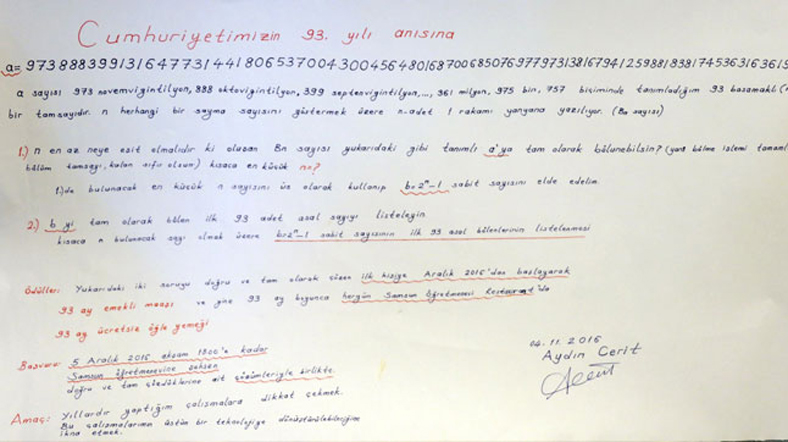 Cumhuriyetimizin 93. yılı anısına
a = 973888399131647731441806537004300456480168700685076977973138167941259881838174536316361
a sayısı 973 novemvigintilyon, 888 oktovigintilyon, 399 septenvigintilyon,..., 361 milyon, 975 bin, 757 biçiminde tanımladığım 93 basamaklı
bir tamsayıdır. n herhangi bir sayma sayısını göstermek üzere n-adet 1 rakamı yanyana yazılıyor. (Bn sayısı)
1.) n en az neye eşit olmalıdır ki oluşan Bn sayısı yukarıdaki gibi tanımlı a'ya tam olarak bölünebilsin? (yani bölme işlemi
bölüm tamsayı, kalan sıfır olsun) kısaca en küçük n=?
1.)de bulunacak en küçük n sayısını üs olarak kullanıp b=2ⁿ-1 sabit sayısını elde edelim.
2.) b yi tam olarak bölen ilk 93 adet asal sayıyı listeleyin
kısaca n bulunacak sayı olmak üzere b=2ⁿ-1 sabit sayısının ilk 93 asal bölenlerinin listelenmesi
Ödüller: Yukarıdaki iki soruyu doğru ve tam olarak çözen ilk kişiye Aralık 2016'dan başlayarak
93 ay emekli maaşı ve yine 93 ay boyunca hergün Samsun Öğretmenevi Restaurant'da
93 ay ücretsiz öğle yemeği
Başvuru: 5 Aralık 2016 akşam 1800'e kadar
Samsun Öğretmenevine
doğru ve tam çözdüklerine ait çözümleriyle birlikte.
Amaç: Yıllardır yaptığım çalışmalara dikkat çekmek.
Bu çalışmalarımın üstün bir teknolojiye dönüştürülebileceğine
ikna etmek.
04.11.2016
Aydın Cerit